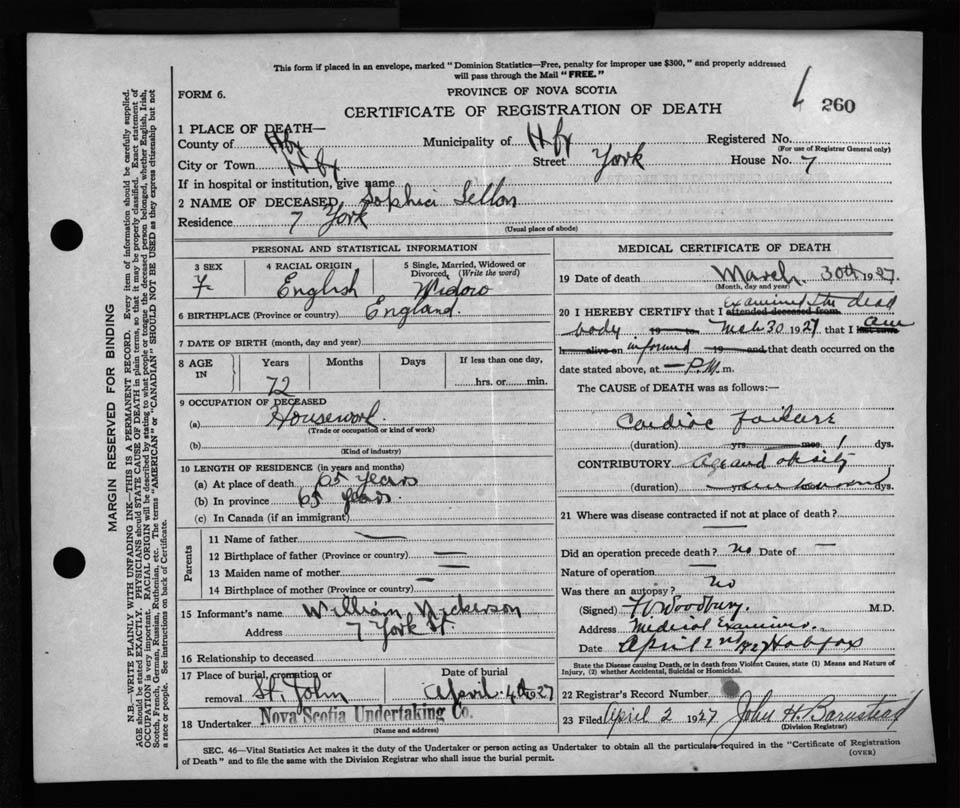 This form if placed in an envelope, marked "Dominion Statistics—Free, penalty for improper use $300," and properly addressed
will pass through the Mail "FREE."
FORM 6.
PROVINCE OF NOVA SCOTIA
CERTIFICATE OF REGISTRATION OF DEATH
260
1 PLACE OF DEATH—
County of Hfx Municipality of Hfx Registered No.
(For use of Registrar General only)
City or Town Hfx Street York House No. 7
If in hospital or institution, give name
2 NAME OF DECEASED Sophia Sellon
Residence 7 York
(Usual place of abode)
PERSONAL AND STATISTICAL INFORMATION
3 SEX F
4 RACIAL ORIGIN English
5 Single, Married, Widowed or Divorced, (Write the word) Widow
6 BIRTHPLACE (Province or country) England.
7 DATE OF BIRTH (month, day and year)
8 AGE IN Years 72 Months Days If less than one day, hrs. or min.
9 OCCUPATION OF DECEASED
(a) Housework.
(Trade or occupation or kind of work)
(b)
(Kind of industry)
10 LENGTH OF RESIDENCE (in years and months)
(a) At place of death 65 years
(b) In province 65 years.
(c) In Canada (if an immigrant)
Parents
11 Name of father —
12 Birthplace of father (Province or country) —
13 Maiden name of mother —
14 Birthplace of mother (Province or country)
15 Informant's name William Nickerson
Address 7 York St.
16 Relationship to deceased
17 Place of burial, cremation or removal St. John
Date of burial April 4th 1927
18 Undertaker Nova Scotia Undertaking Co.
(Name and address)
MEDICAL CERTIFICATE OF DEATH
19 Date of death March 30th 1927.
(Month, day and year)
20 I HEREBY CERTIFY that I attended deceased from examined the dead
body 19 to Mch 30 1927, that I am
informed 19 and that death occurred on the
date stated above, at — P.M. m.
The CAUSE of DEATH was as follows:—
Cardiac failure
(duration) yrs. mos. 1 dys.
CONTRIBUTORY Age and obesity
(duration) dys.
21 Where was disease contracted if not at place of death?
—
Did an operation precede death? No Date of —
Nature of operation —
Was there an autopsy? No
(Signed) Woodbury. M.D.
Address Medical Examiner.
Date April 2nd 1927 Halifax
State the Disease causing Death, or in death from Violent Causes, state (1) Means and Nature of
Injury, (2) whether Accidental, Suicidal or Homicidal.
22 Registrar's Record Number
23 Filed April 2 1927 John H. Barnstead
(Division Registrar)
SEC. 46—Vital Statistics Act makes it the duty of the Undertaker or person acting as Undertaker to obtain all the particulars required in the "Certificate of Registration
of Death" and to file the same with the Division Registrar who shall issue the burial permit.
(OVER)
MARGIN RESERVED FOR BINDING
N.B.—WRITE PLAINLY WITH UNFADING INK—THIS IS A PERMANENT RECORD. Every item of information should be carefully supplied.
AGE should be stated EXACTLY. PHYSICIANS should STATE CAUSE OF DEATH in plain terms, so that it may be properly classified. Exact statement of
OCCUPATION is very important. RACIAL ORIGIN will be described by stating to what people or tongue the deceased person belonged, whether English, Irish,
Scotch, French, German, Russian, Ruthenian, etc. The terms "AMERICAN" or "CANADIAN" SHOULD NOT BE USED as they express citizenship but not
a race or people. See instructions on back of Certificate.